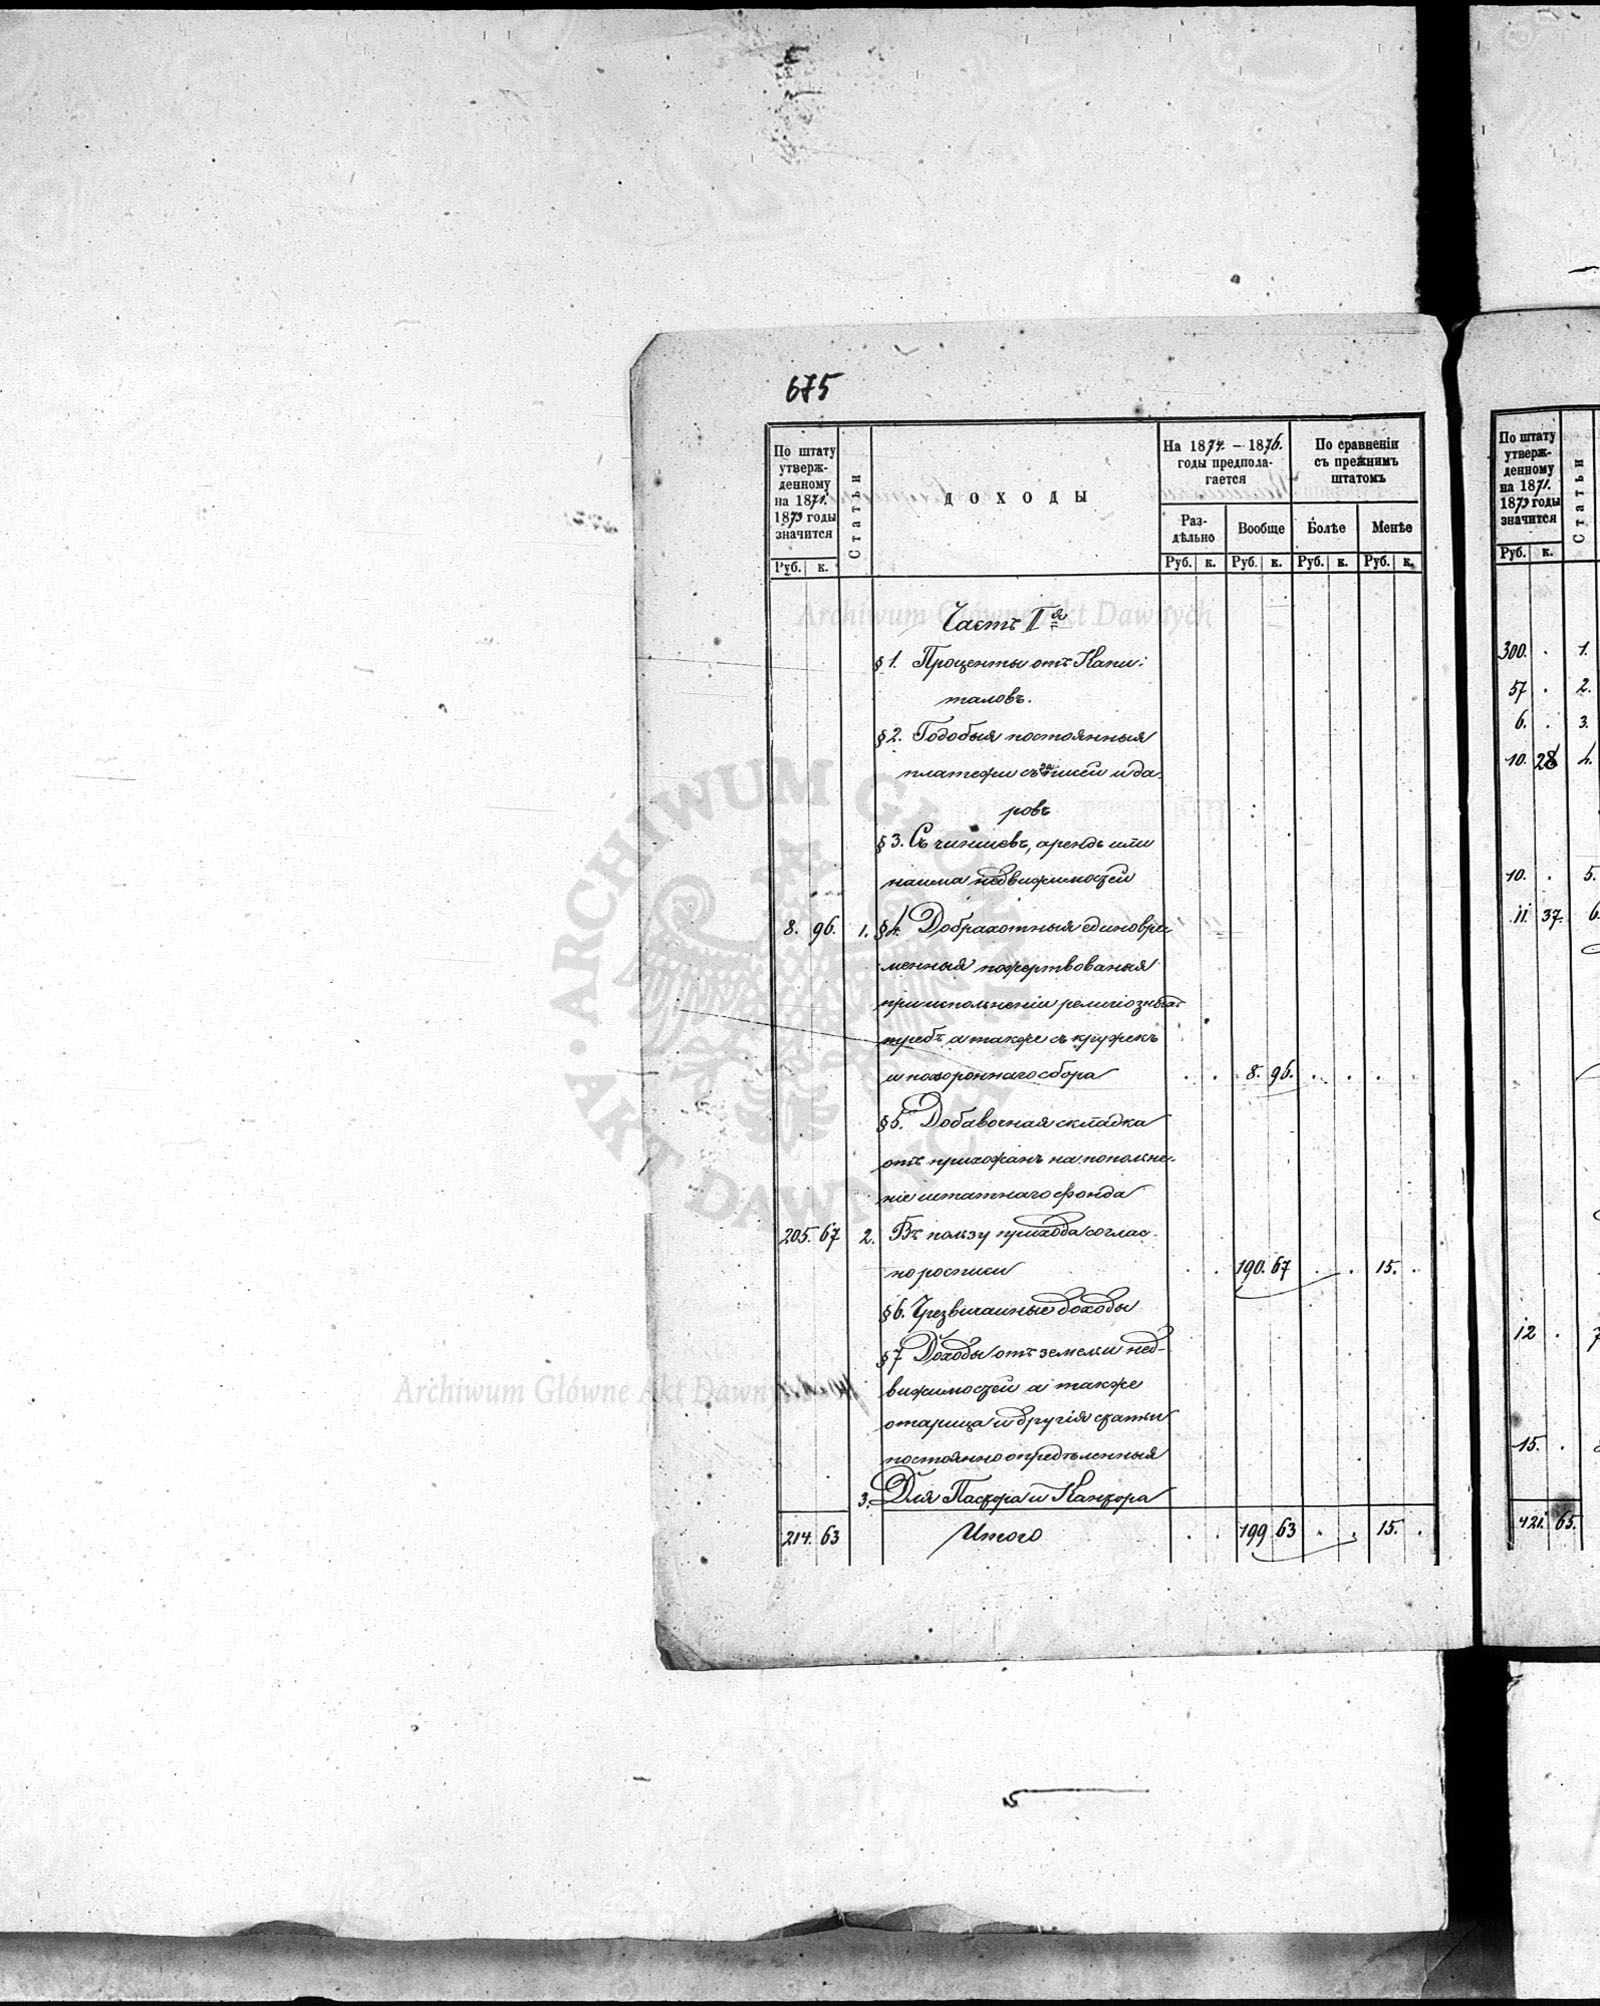 675
По штату утверж-денному на 1871. 1873 годы значится
Статьи
ДОХОДЫ
На 1874. – 1876. годы предпола-гается
По сравненiи съ прежнимъ штатомъ
Раз-дѣльно
Вообще
Болѣе
Менѣе
Руб. к.
Руб. к. Руб. к. Руб. к. Руб. к.
Часть I я
§ 1. Проценты отъ Капи:
таловъ.
§ 2. Годовыя постоянныя
платежи съ записей и да-
ровъ
§ 3. Съ чиншевъ, арендъ или
найма недвижимостей
8. 96. 1. § 4. Доброхотныя единовре-
менныя пожертвованыя
при исполненiи религiозныхъ
требъ а также съ кружекъ
и похороннаго сбора . . 8. 96. . . . .
§ 5. Добавочная складка
отъ прихожанъ на пополне-
нiе штатнаго фонда
205. 67 2. Въ пользу прихода соглас-
но росписи . . 190. 67 . . 15. .
§ 6. Чрезвичайные доходы
§ 7 Доходы отъ земель и нед-
вижимостей а также
и другiя статьи
постоянно опредѣленныя
3. Для Пастора и Кантора
214. 63 Итого . . 199 63 . . 15. .
По штату утверж-денному на 1871. 1873 годы значится
Статьи
Руб. к.
300. . 1.
57 . 2.
6. . 3.
10. 28 4.
10. . 5.
11. 37. 6.
12 . 7
15. .
421. 65.
Archiwum Główne Akt Dawnych
ARCHIWUM GŁÓWNE AKT DAWNYCH
Archiwum Główne Akt Dawnych